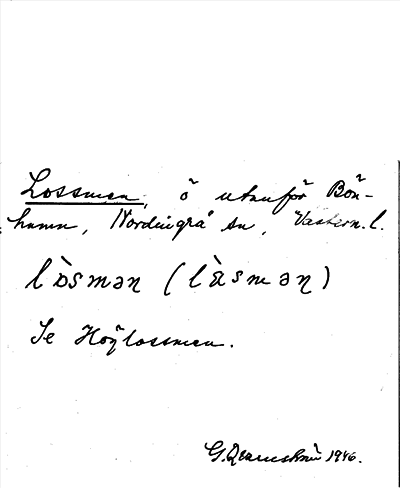 Lossmen, ö utanför Bön-
hamn, Nordingrå sn, Västern. l.
lòsmən (làsmən)
Se Höglossmen.
G. 1946.